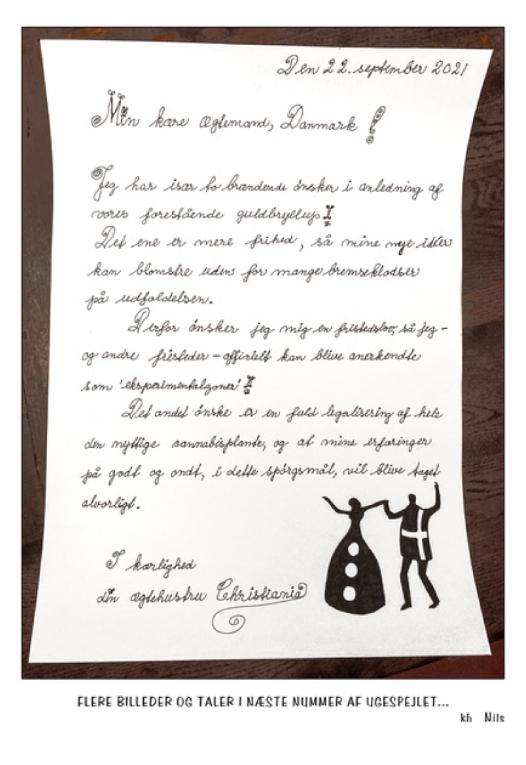 Den 22. september 2021
Min kære Ægtemand, Danmark!
Jeg har især to brændende ønsker i anledning af
vores forestående guldbryllup!
Det ene er mere frihed, så mine nye idéer
kan blomstre uden for mange bremseklodser
på udfoldelsen.
Derfor ønsker jeg mig en fristedslov, så jeg -
og andre fristeder - officielt kan blive anerkendte
som 'eksperimentalzoner'!
Det andet ønske er en fuld legalisering af hele
den nyttige cannabisplante, og at mine erfaringer
på godt og ondt, i dette spørgsmål, vil blive taget
alvorligt.
I kærlighed
din ægtehustru Christiania
FLERE BILLEDER OG TALER I NÆSTE NUMMER AF UGESPEJLET...
kh Nils